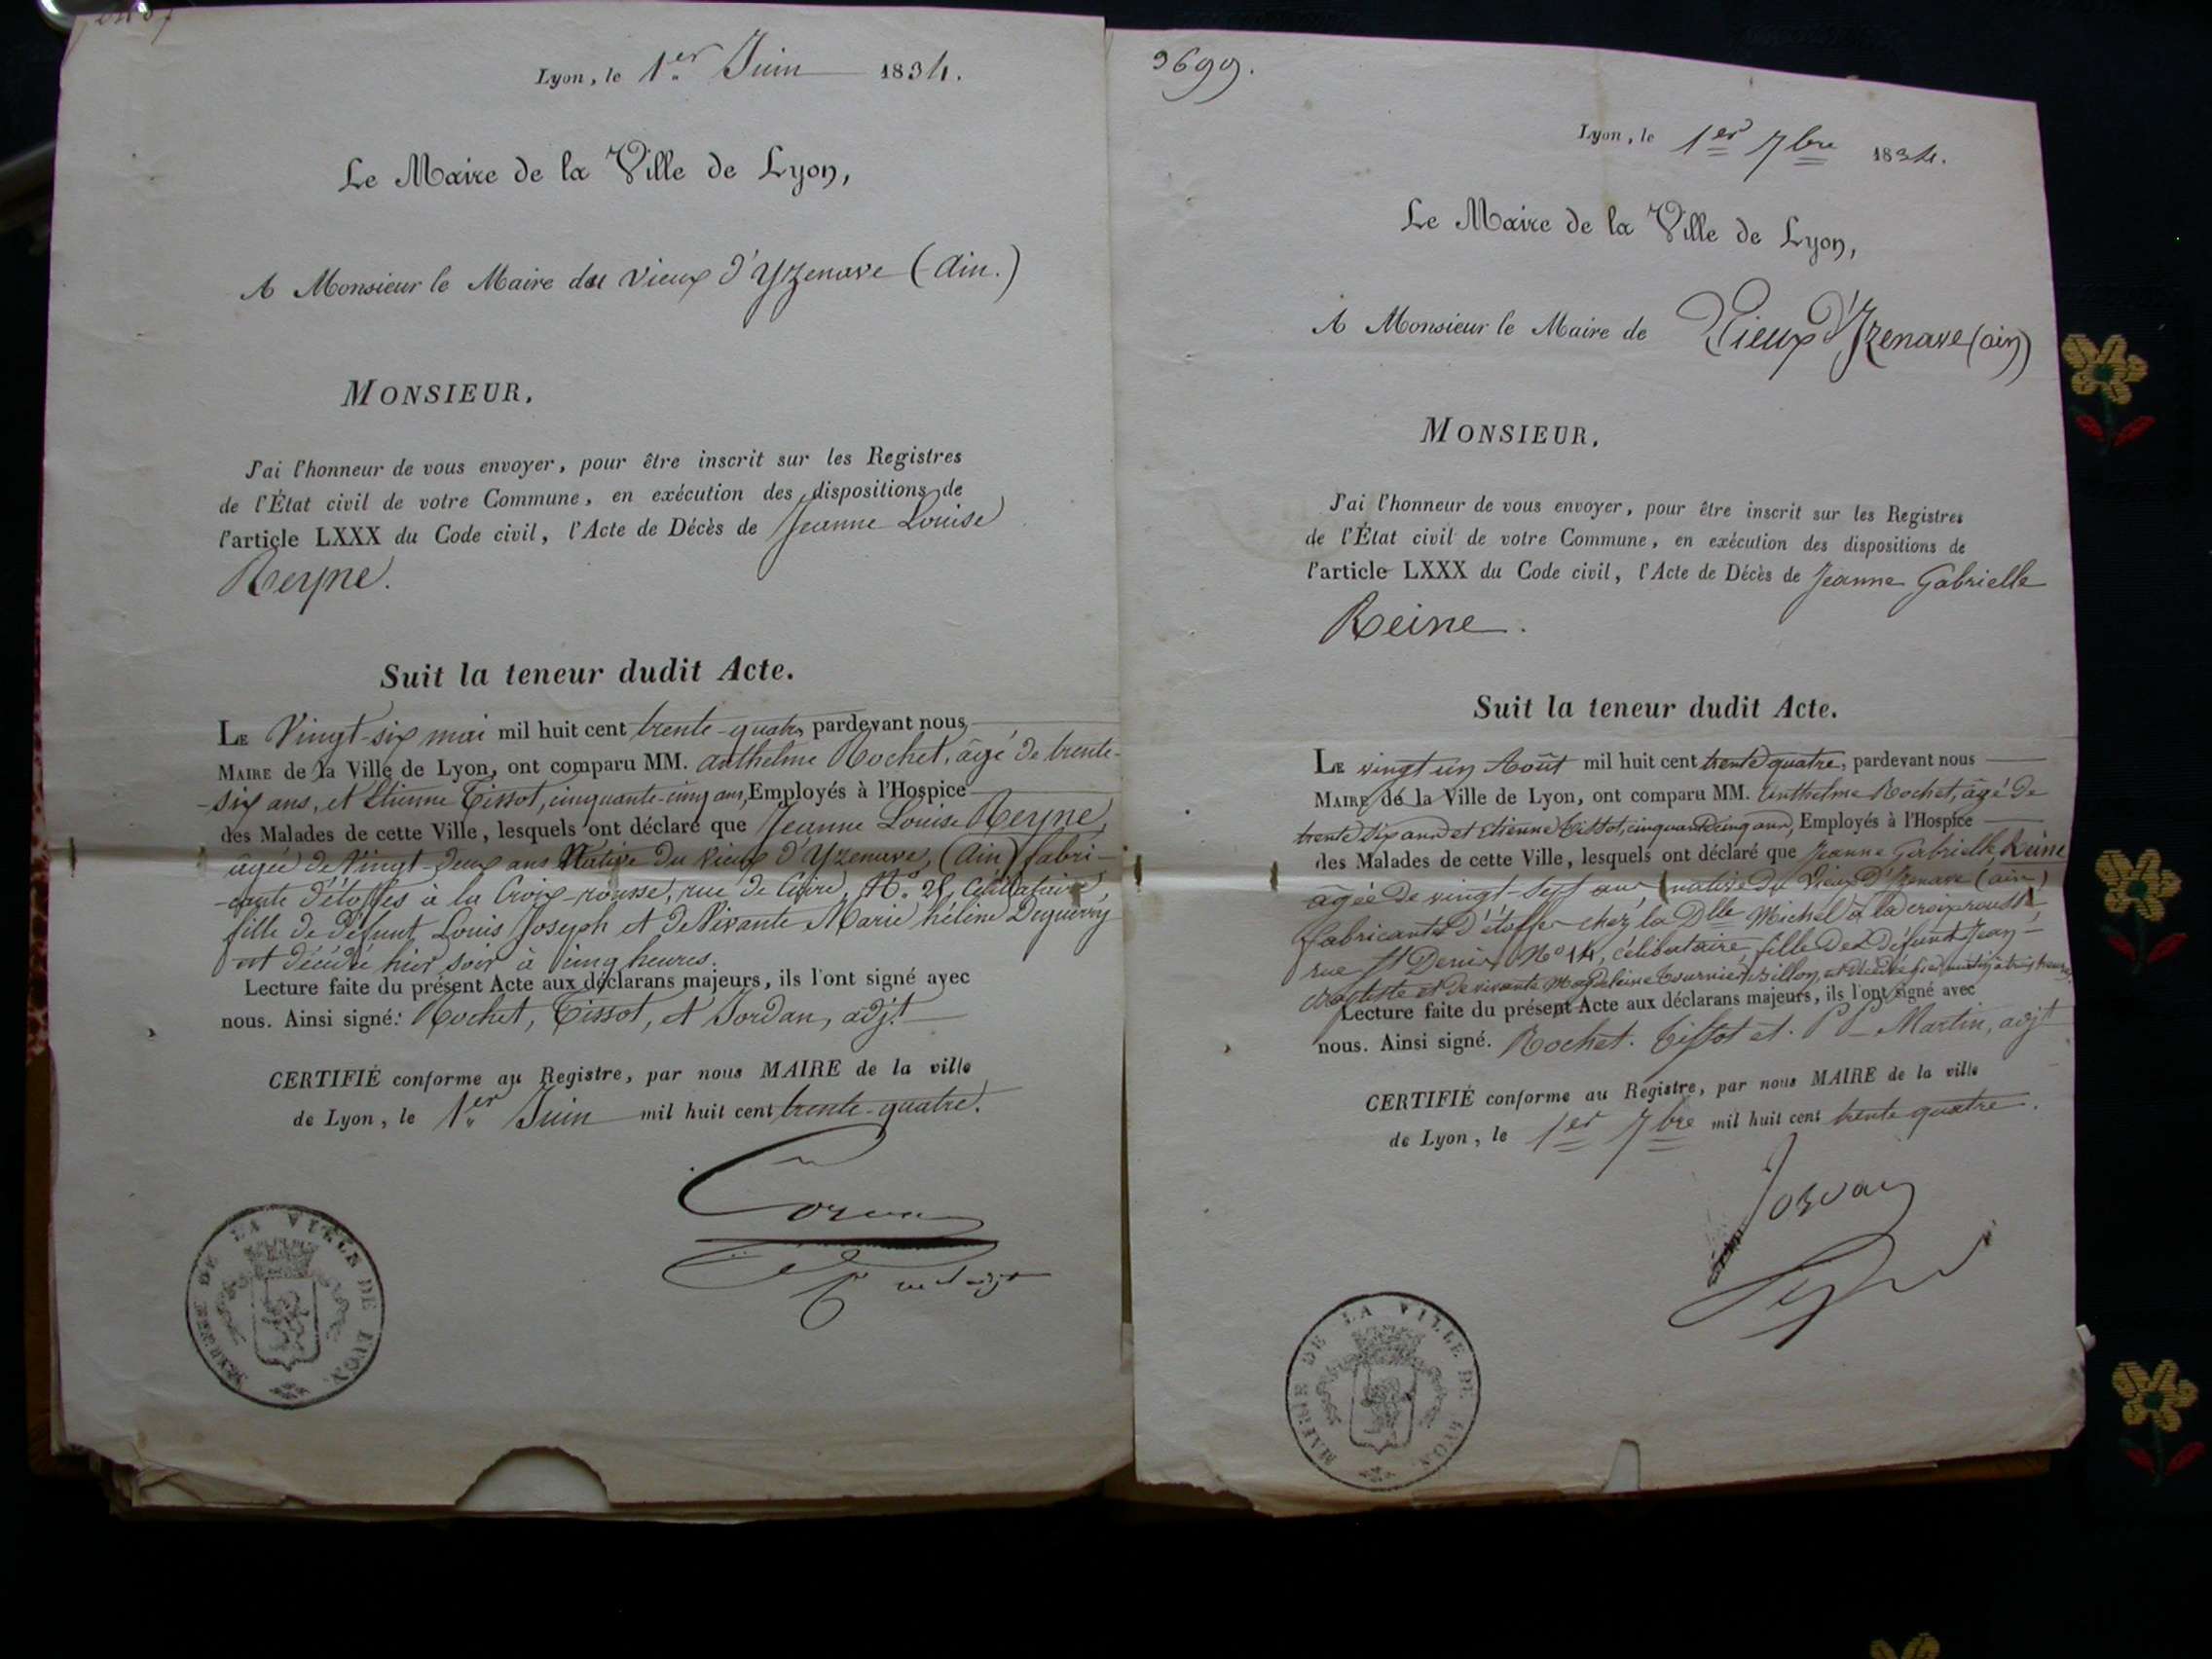 Lyon, le 1.er Juin 1834.
Le Maire de la Ville de Lyon,
A Monsieur le Maire du Vieux d'Yzenave (Ain.)
MONSIEUR,
J'ai l'honneur de vous envoyer, pour être inscrit sur les Registres
de l'État civil de votre Commune, en exécution des dispositions de
l'article LXXX du Code civil, l'Acte de Décès de Jeanne Louise
Reyne.
Suit la teneur dudit Acte.
LE Vingt-six mai mil huit cent trente-quatre, pardevant nous
MAIRE de la Ville de Lyon, ont comparu MM. Anthelme Rochet, âgé de trente-
-six ans, et Etienne Tissot, cinquante-cinq ans, Employés à l'Hospice
des Malades de cette Ville, lesquels ont déclaré que Jeanne Louise Reyne,
âgée de Vingt-deux ans Native du Vieux d'Yzenave, (Ain) fabri-
-cante d'étoffes à la Croix-rousse, rue de Cuire, N.o 28, Célibataire,
fille de défunt Louis Joseph et de Vivante Marie hélène Deguerry
est décédée hier soir à cinq heures.
Lecture faite du présent Acte aux déclarans majeurs, ils l'ont signé avec
nous. Ainsi signé: Rochet, Tissot, et Jordan, adj.t
CERTIFIÉ conforme au Registre, par nous MAIRE de la ville
de Lyon, le 1.er Juin mil huit cent trente-quatre.
MAIRIE DE LA VILLE DE LYON
9699.
Lyon, le 1er 7bre 1834.
Le Maire de la Ville de Lyon,
A Monsieur le Maire de Vieux d'Izenave (ain)
MONSIEUR,
J'ai l'honneur de vous envoyer, pour être inscrit sur les Registres
de l'État civil de votre Commune, en exécution des dispositions de
l'article LXXX du Code civil, l'Acte de Décès de Jeanne Gabrielle
Reine.
Suit la teneur dudit Acte.
LE vingt un Août mil huit cent trente quatre, pardevant nous
MAIRE de la Ville de Lyon, ont comparu MM. Anthelme Rochet, âgé de
trente six ans et Etienne Tissot, cinquante cinq ans, Employés à l'Hospice
des Malades de cette Ville, lesquels ont déclaré que Jeanne Gabrielle Reine
âgée de vingt-sept ans native du Vieux D'Izenave (ain)
fabricante d'étoffes chez la Dlle Michel à la croix rousse
rue St Denis No 14, célibataire, fille de Défunt Jean-
Baptiste et de vivante Magdeleine Tournier Billon, est décédée hier matin à trois heures.
Lecture faite du présent Acte aux déclarans majeurs, ils l'ont signé avec
nous. Ainsi signé. Rochet. Tissot et. Martin, adjt
CERTIFIÉ conforme au Registre, par nous MAIRE de la ville
de Lyon, le 1er 7bre mil huit cent trente quatre.
MAIRIE DE LA VILLE DE LYON